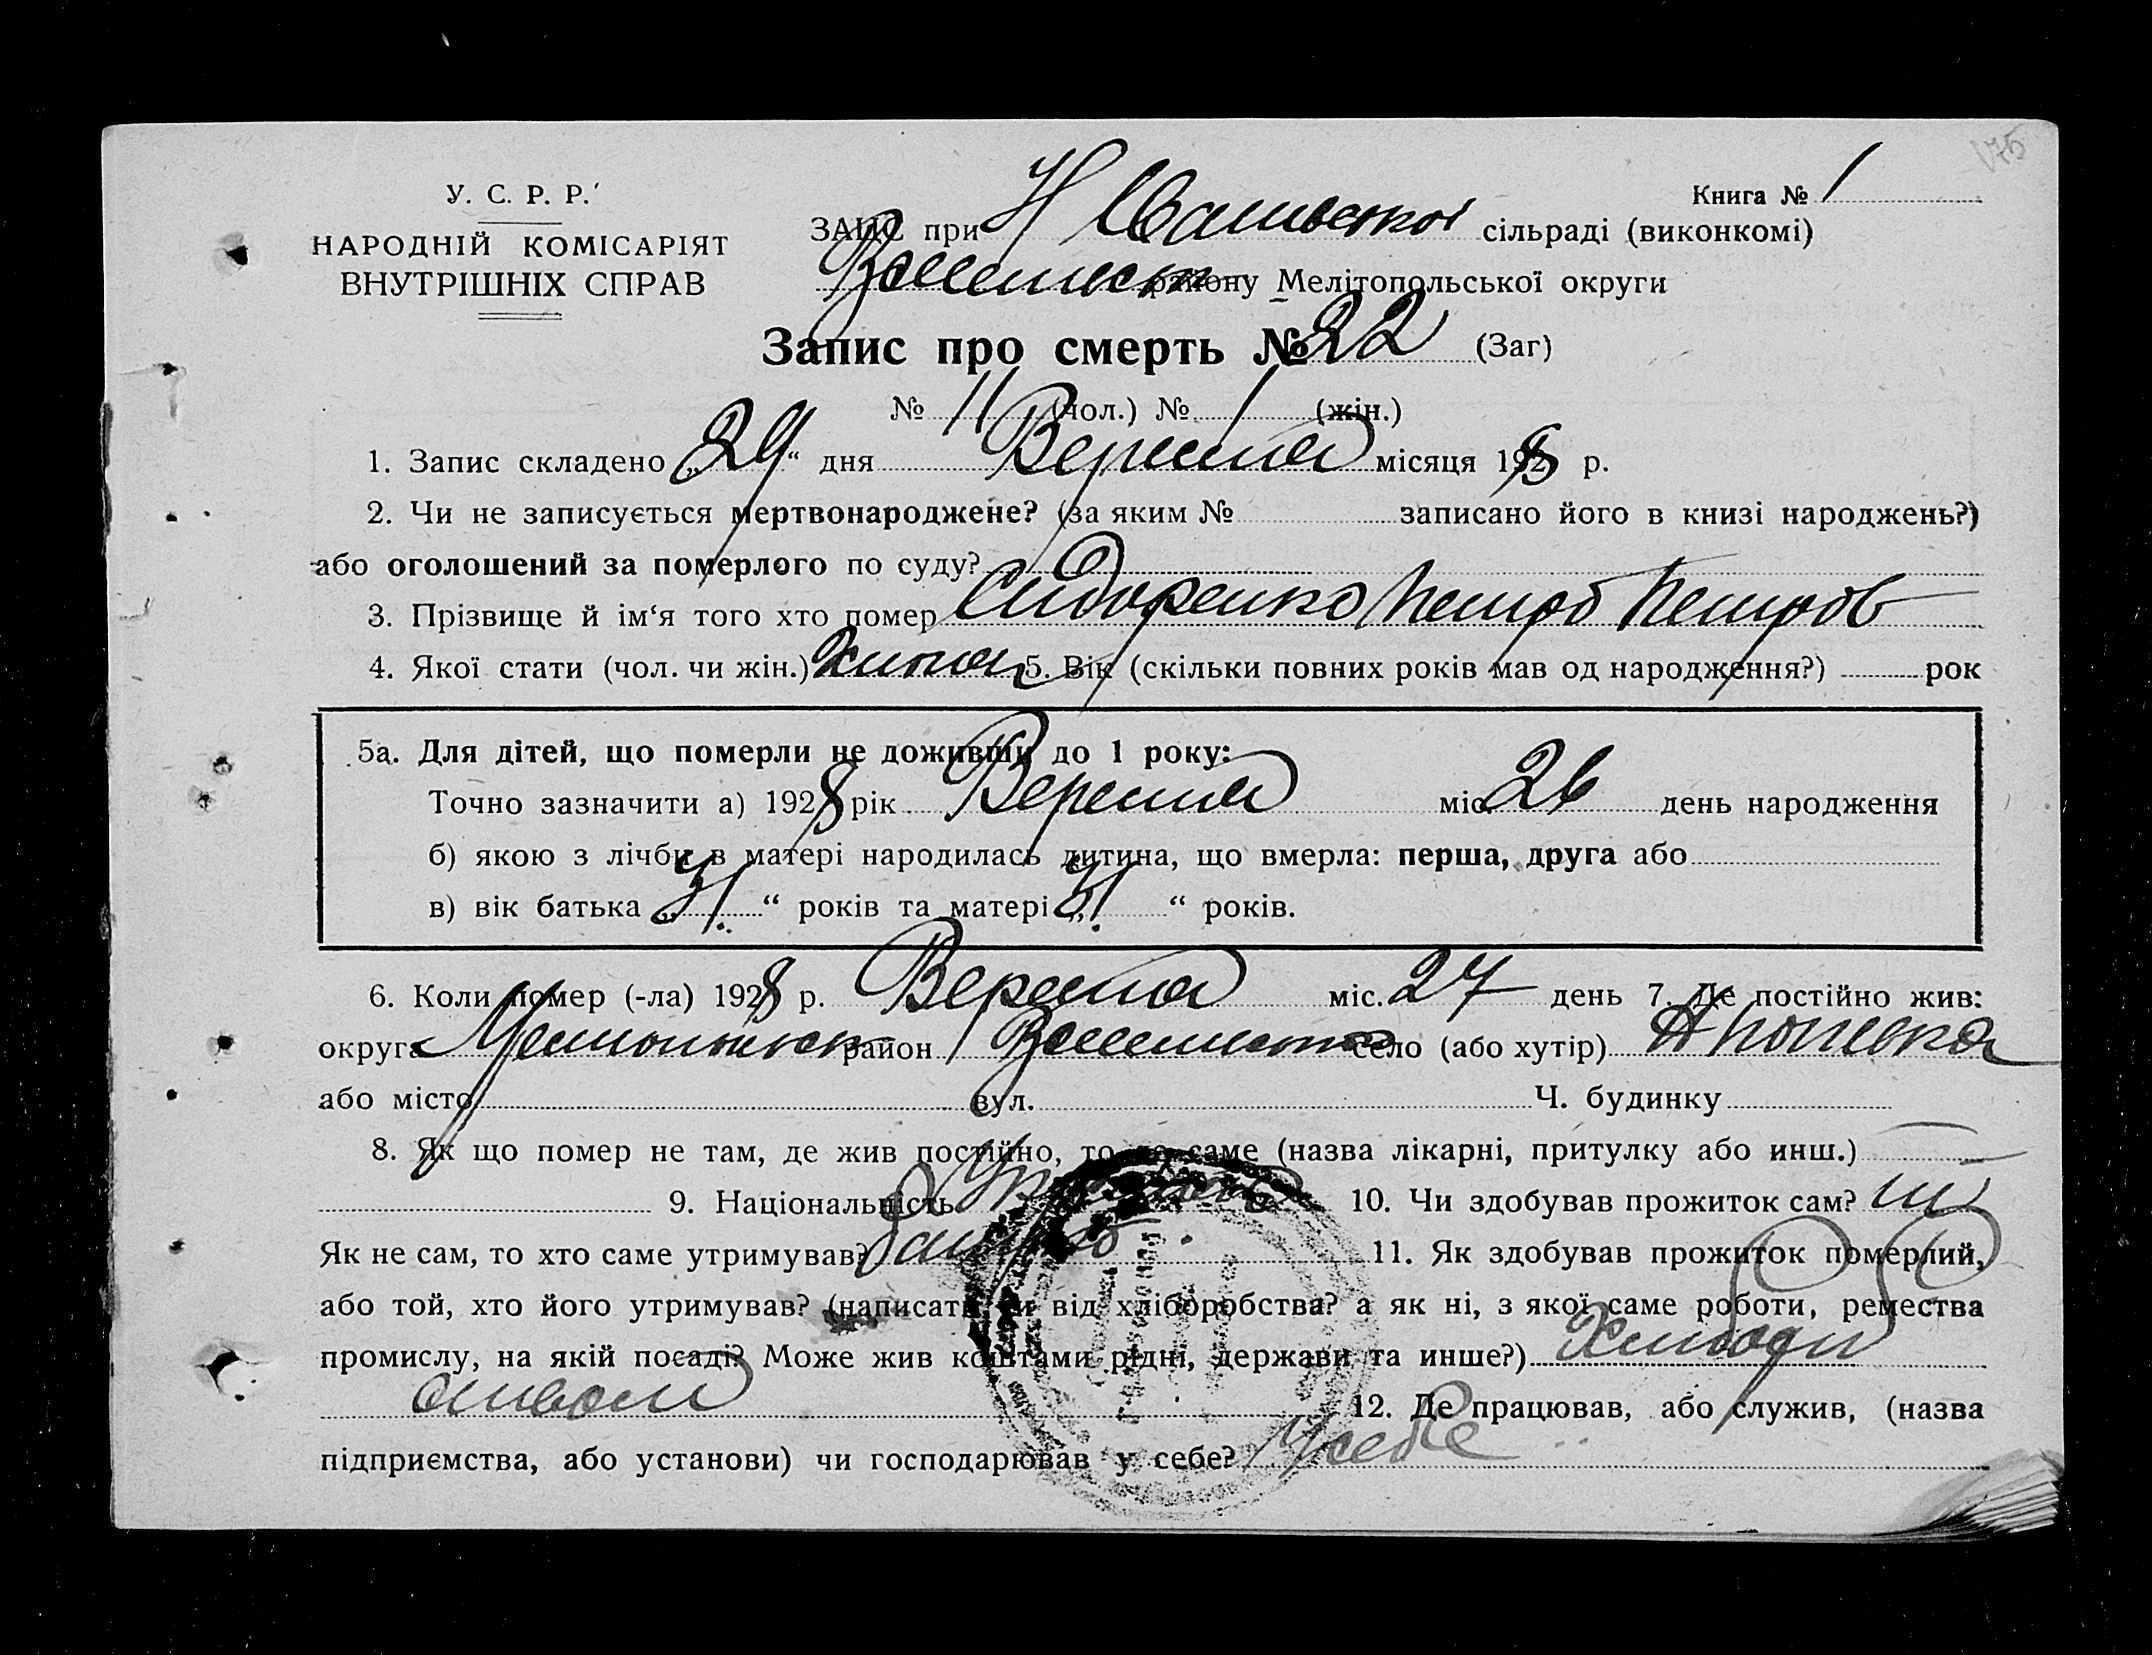 175
У. С. Р. Р.
НАРОДНІЙ КОМІСАРІЯТ
ВНУТРІШНІХ СПРАВ
Книга № 1
ЗАЦС при Н сільраді (виконкомі)
району Мелітопольської округи
Запис про смерть № 22 (Заг)
№ 11 (чол.) № / (жін.)
1. Запис складено „29“ дня Вересня місяця 1928 р.
2. Чи не записується мертвонароджене? (за яким № записано його в книзі народжень?)
або оголошений за померлого по суду?
3. Прізвище й ім‘я того хто помер Сидоренко Петро Петров
4. Якої стати (чол. чи жін.) 5. Вік (скільки повних років мав од народження?) рок
5а. Для дітей, що померли не доживши до 1 року:
Точно зазначити а) 1928 рік Вересня міс 26 день народження
б) якою з лічби в матері народилась дитина, що вмерла: перша, друга або
в) вік батька „31“ років та матері „31“ років.
6. Коли помер (-ла) 1928 р. Вересня міс. 27 день 7. Де постійно жив:
округа район село (або хутір)
або місто вул. Ч. будинку
8. Як що помер не там, де жив постійно, то де саме (назва лікарні, притулку або инш.)
9. Національність 10. Чи здобував прожиток сам? ні
Як не сам, то хто саме утримував? батько 11. Як здобував прожиток померлий,
або той, хто його утримував? (написати чи від хліборобства? а як ні, з якої саме роботи, ремества
промислу, на якій посаді? Може жив коштами рідні, держави та инше?)
12. Де працював, або служив, (назва
підприємства, або установи) чи господарював у себе? У себе